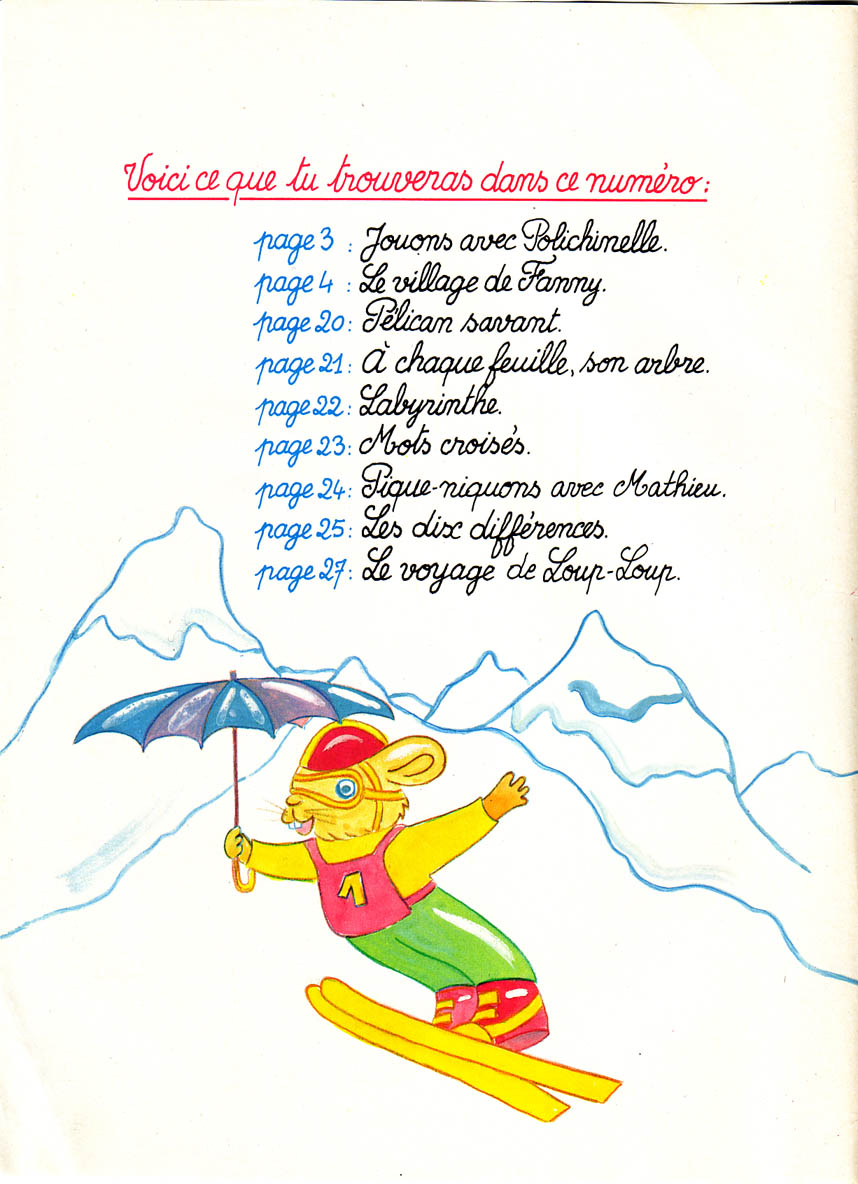 Voici ce que tu trouveras dans ce numéro :
page 3 : Jouons avec Polichinelle.
page 4 : Le village de Fanny.
page 20 : Pélican savant.
page 21 : À chaque feuille, son arbre.
page 22 : Labyrinthe.
page 23 : Mots croisés.
page 24 : Pique-niquons avec Mathieu.
page 25 : Les dix différences.
page 27 : Le voyage de Loup-Loup.
1